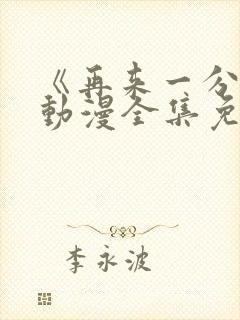 《再来一分
动漫全集免
李永波